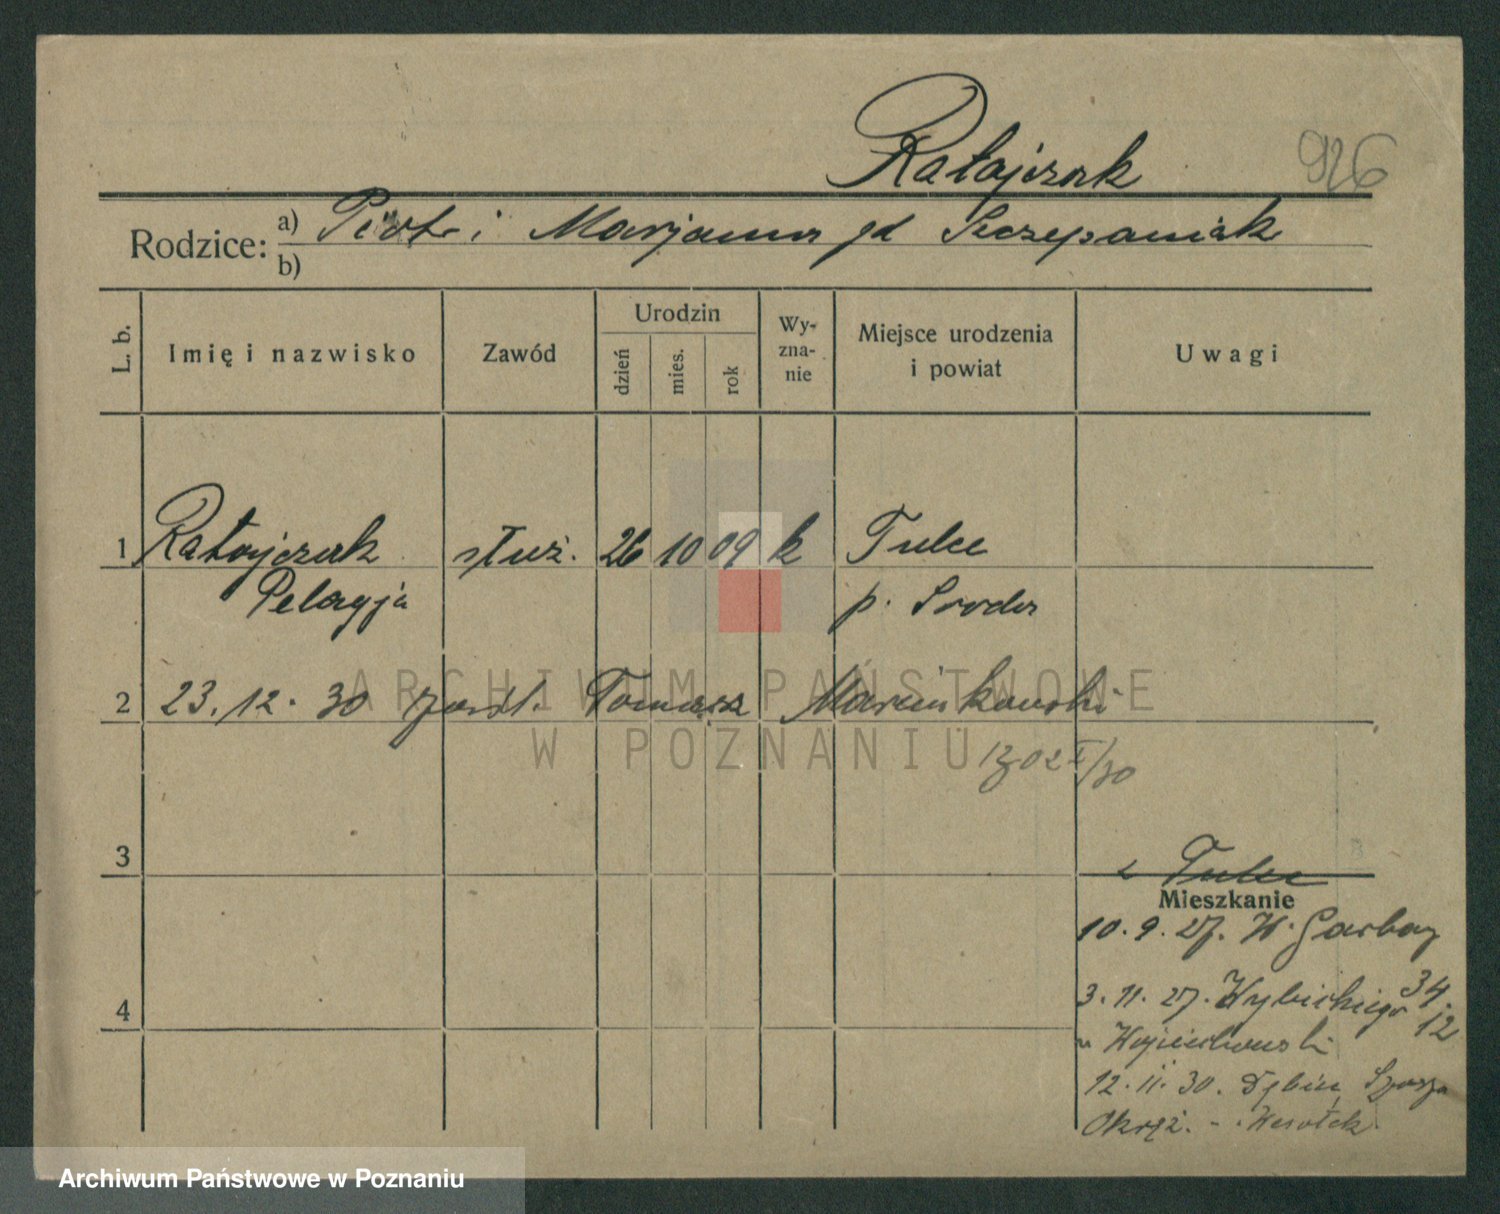 Ratajczak 926
Rodzice: a) Piotr i Marjanna zd Szczepaniak
b)
L. b. Imię i nazwisko Zawód Urodzin dzień mies. rok Wy-zna-nie Miejsce urodzenia i powiat Uwagi
1 Ratajczak służ. 26 10 09 k Tulce
Pelagja p. Sroda
2 23.12.30 Tomasz Marcinkowski
ARCHIWUM PAŃSTWOWE
W POZNANIU
3
z Tulce
Mieszkanie
10.9.27. W. Garbary
3.11.27. Wybickiego 34
12
4
u Wojciechowski
12.11.30.
Okręż. -
Archiwum Państwowe w Poznaniu